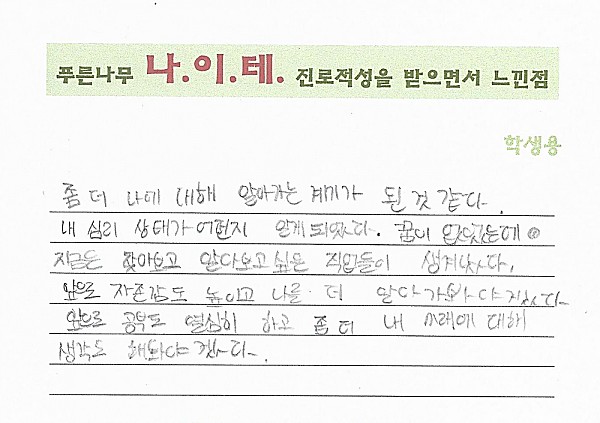 푸른나무 나.이.테. 진로적성을 받으면서 느낀점
학생용
좀 더 나에 대해 알아가는 계기가 된 것 같다.
내 심리 상태가 어떤지 알게 되었다. 꿈이 없었는데
지금은 찾아보고 알아보고 싶은 직업들이 생겨났다.
앞으로 자존감도 높이고 나를 더 알아가봐야겠다.
앞으로 공부도 열심히 하고 좀 더 내 미래에 대해
생각도 해봐야겠다.